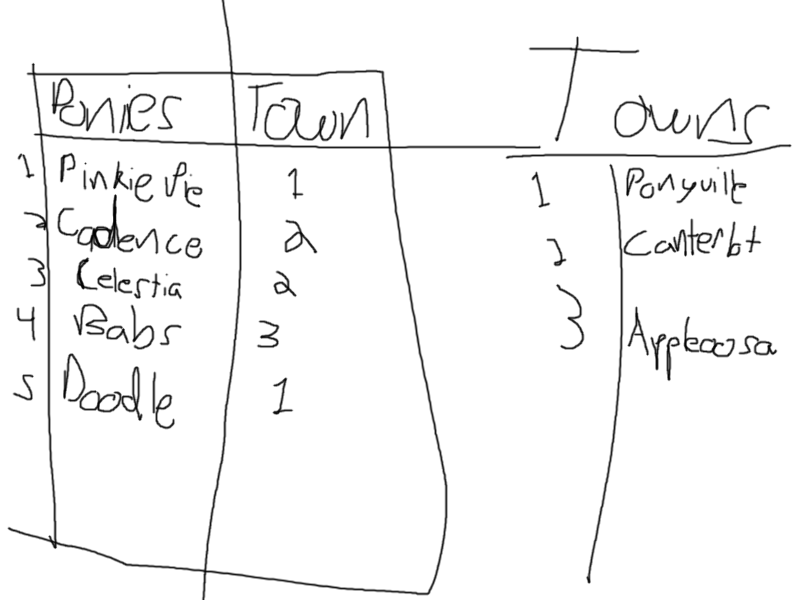 Ponies Town
1 Pinkie Pie 1
2 Cadence 2
3 Celestia 2
4 Babs 3
5 Doodle 1
Towns
1 Ponyville
2 Canterbt
3 Appleoosa